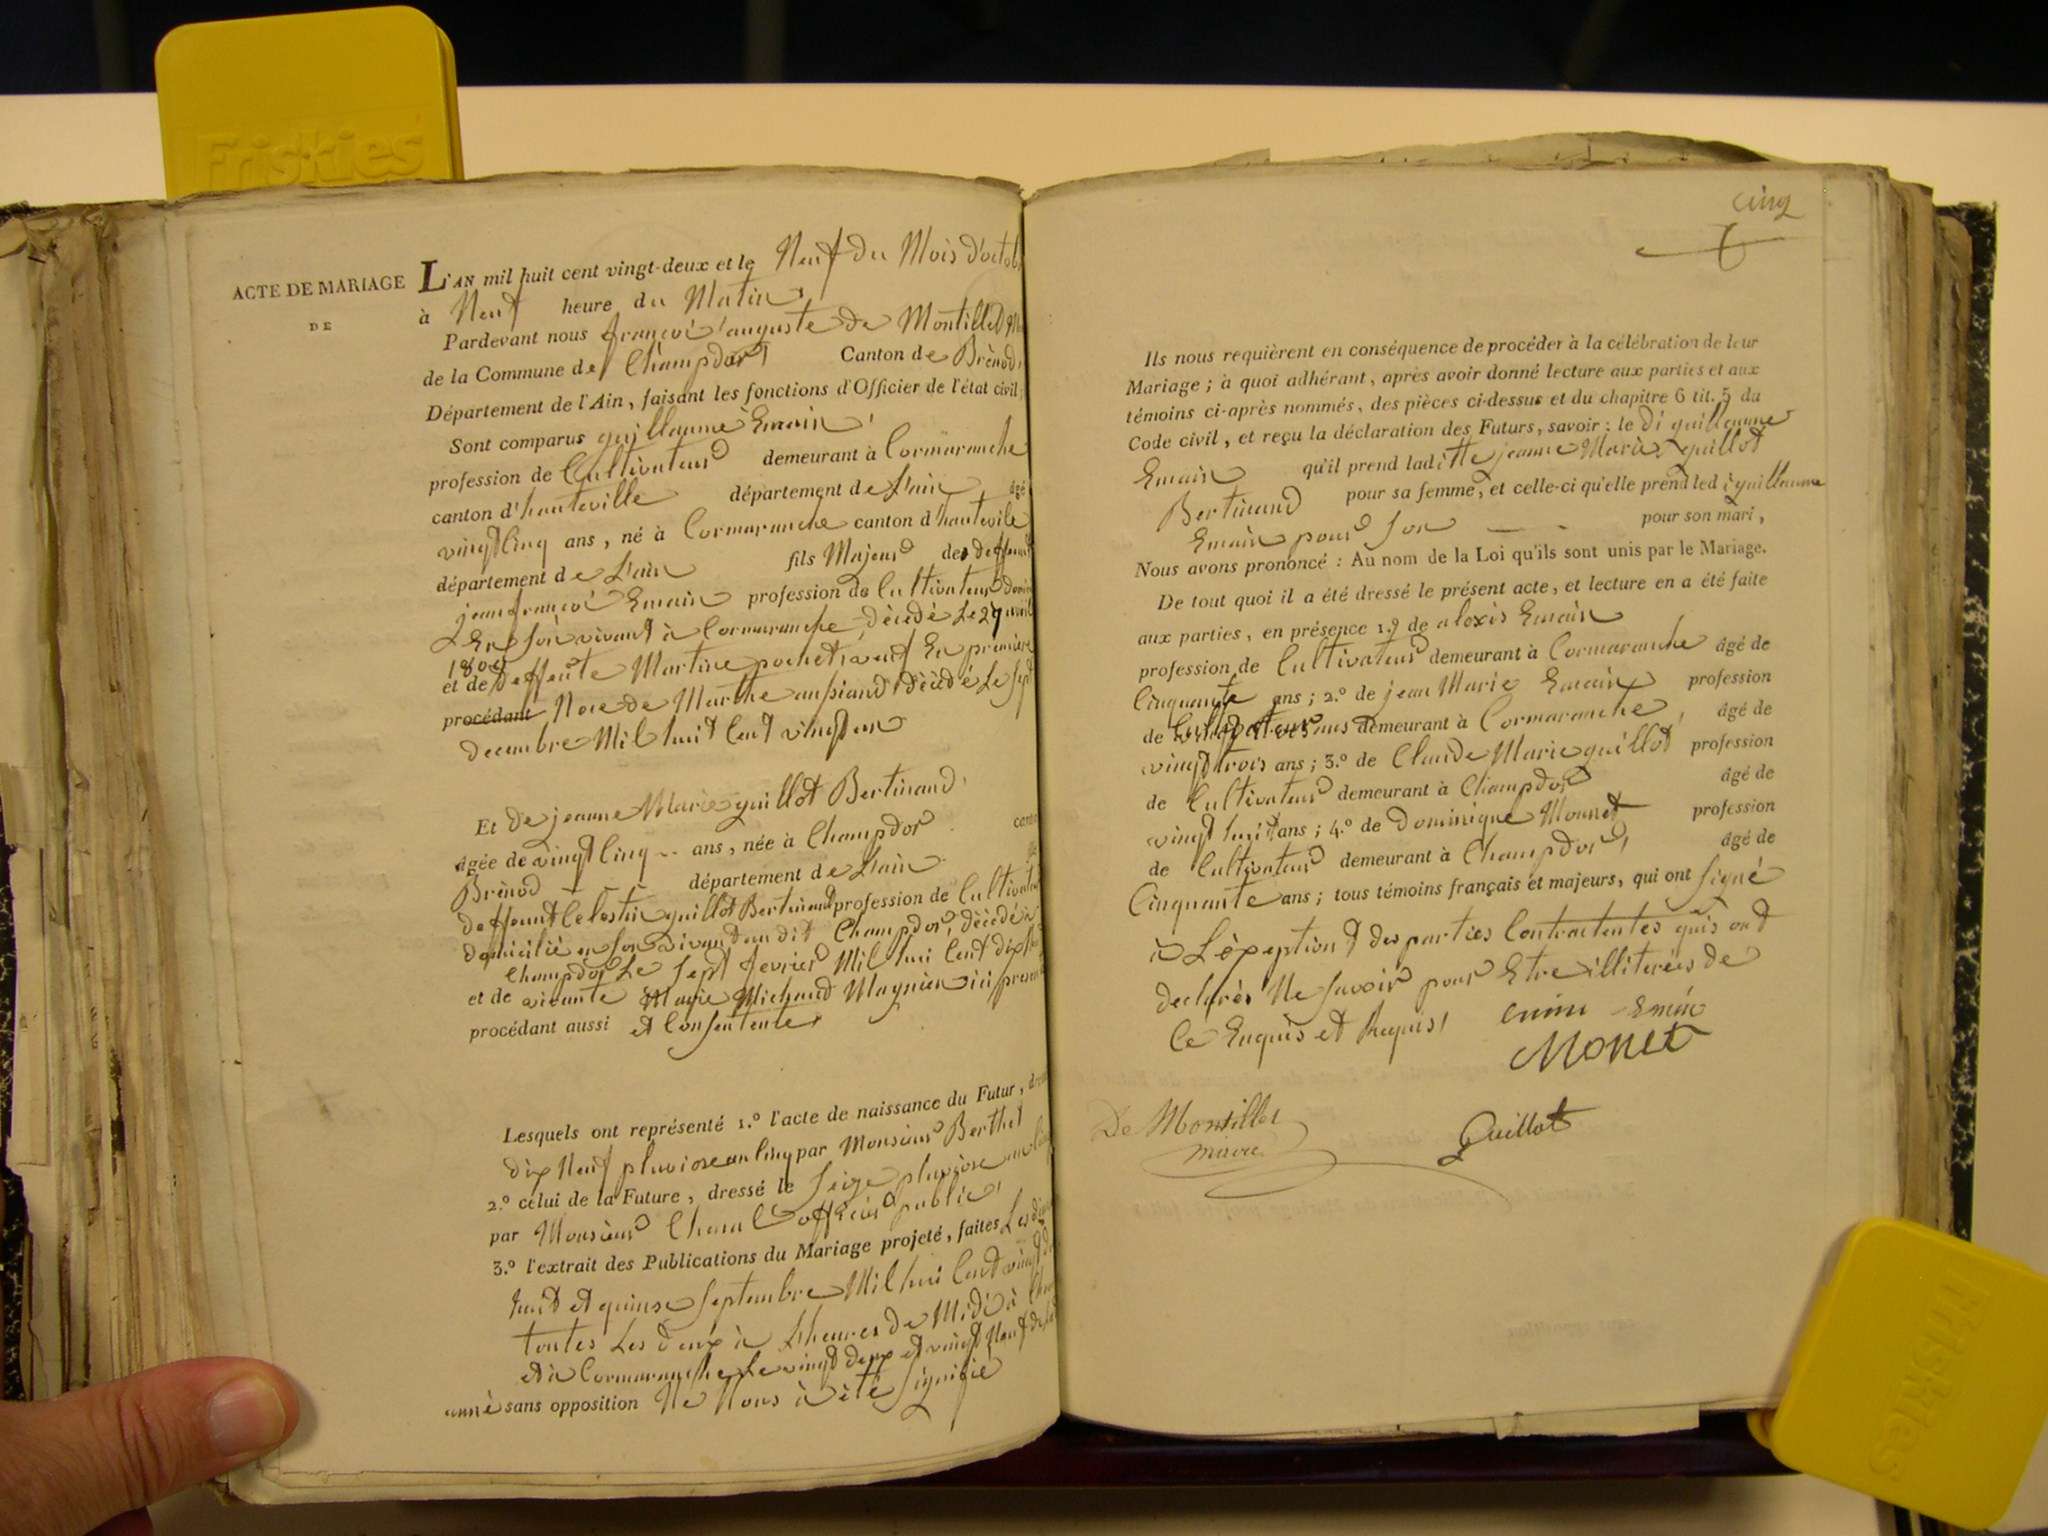 Friskies
ACTE DE MARIAGE
DE
L'AN mil huit cent vingt-deux et le Neuf du Mois d'octob
à Neuf heure du Matin
Pardevant nous françoi auguste de Montillet
de la Commune de Champdor Canton de Brènod
Département de l'Ain, faisant les fonctions d'Officier de l'état civil,
Sont comparus guillaume Emain
profession de Cultivateur demeurant à Cormaranche
canton d'hauteville département de L'ain âgé
vingt Cinq ans, né à Cormaranche canton d'hautevile
département de L'ain fils Majeur des deffunt
jean françoi Emain profession de Cultivateur
En son vivant à Cormaranche, dècèdè Le 29 avril
1809
et de Deffente Martine pochet veuf En premiere
procédant Noce de Marthe aupiand dècèdè Le sept
decembre Mil huit Cent vingt un
Et de jeanne Marie guillot Bertinand
âgée de vingt Cinq ans, née à Champdor cant
Brènod département de L'ain
deffeunt Celestin guillot Bertinand profession de Cultivate
domicilié en son vivant au dit Champdor, dècèdè
Champdor Le sept fevrier Mil hui Cent dix
et de vivante Marie Michaud Magnin ici present
procédant aussi et Consentente
Lesquels ont représenté 1.º l'acte de naissance du Futur, dre
dix Neuf pluviose an Cinq par Monsieur Berthet
2.º celui de la Future, dressé le seize pluviose an Cinq
par Monsieur officier public
3.º l'extrait des Publications du Mariage projeté, faites Les
huit et quinse septembre Mil hui Cent vingt d
toutes Les deux à heures de Midi à Cham
et à Cormaranche Le vingt deux et vingt Neuf de
annè sans opposition Ne Nous à ètè signifiè
cinq
Ils nous requièrent en conséquence de procéder à la célébration de leur
Mariage; à quoi adhérant, après avoir donné lecture aux parties et aux
témoins ci-après nommés, des pièces ci-dessus et du chapitre 6 tit. 5 du
Code civil, et reçu la déclaration des Futurs, savoir: le di guillaume
Emain qu'il prend laditte jeanne Marie guillot
Bertinand pour sa femme, et celle-ci qu'elle prend led i guillaume
Emain pour son pour son mari,
Nous avons prononcé: Au nom de la Loi qu'ils sont unis par le Mariage.
De tout quoi il a été dressé le présent acte, et lecture en a été faite
aux parties, en présence 1.º de alexis Emain
profession de Cultivateur demeurant à Cormaranche âgé de
Cinquante ans; 2.º de jean Marie Emain profession
de demeurant à Cormaranche, âgé de
vingt trois ans; 3.º de Claude Marie guillot profession
de Cultivateur demeurant à Champdor âgé de
vingt huit ans; 4.º de dominique Monnet profession
de Cultivateur demeurant à Champdor, âgé de
Cinquante ans; tous témoins français et majeurs, qui ont signè
à L'èxeptiont des parties Contractentes quis ont
declarès Ne savoir pour Etre illiterèes de
Ce Enquis et Requis,
emin Emin
Monet
De Montillet
maire
Guillot
Friskies